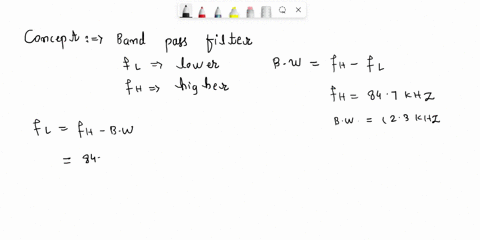 Concept :⇒ Band pass filter
f_L ⇒ lower
f_H ⇒ higher
B.W = f_H - f_L
f_H = 84.7 KHZ
B.W. = 12.3 KHZ
f_L = f_H - B.W
= 84.